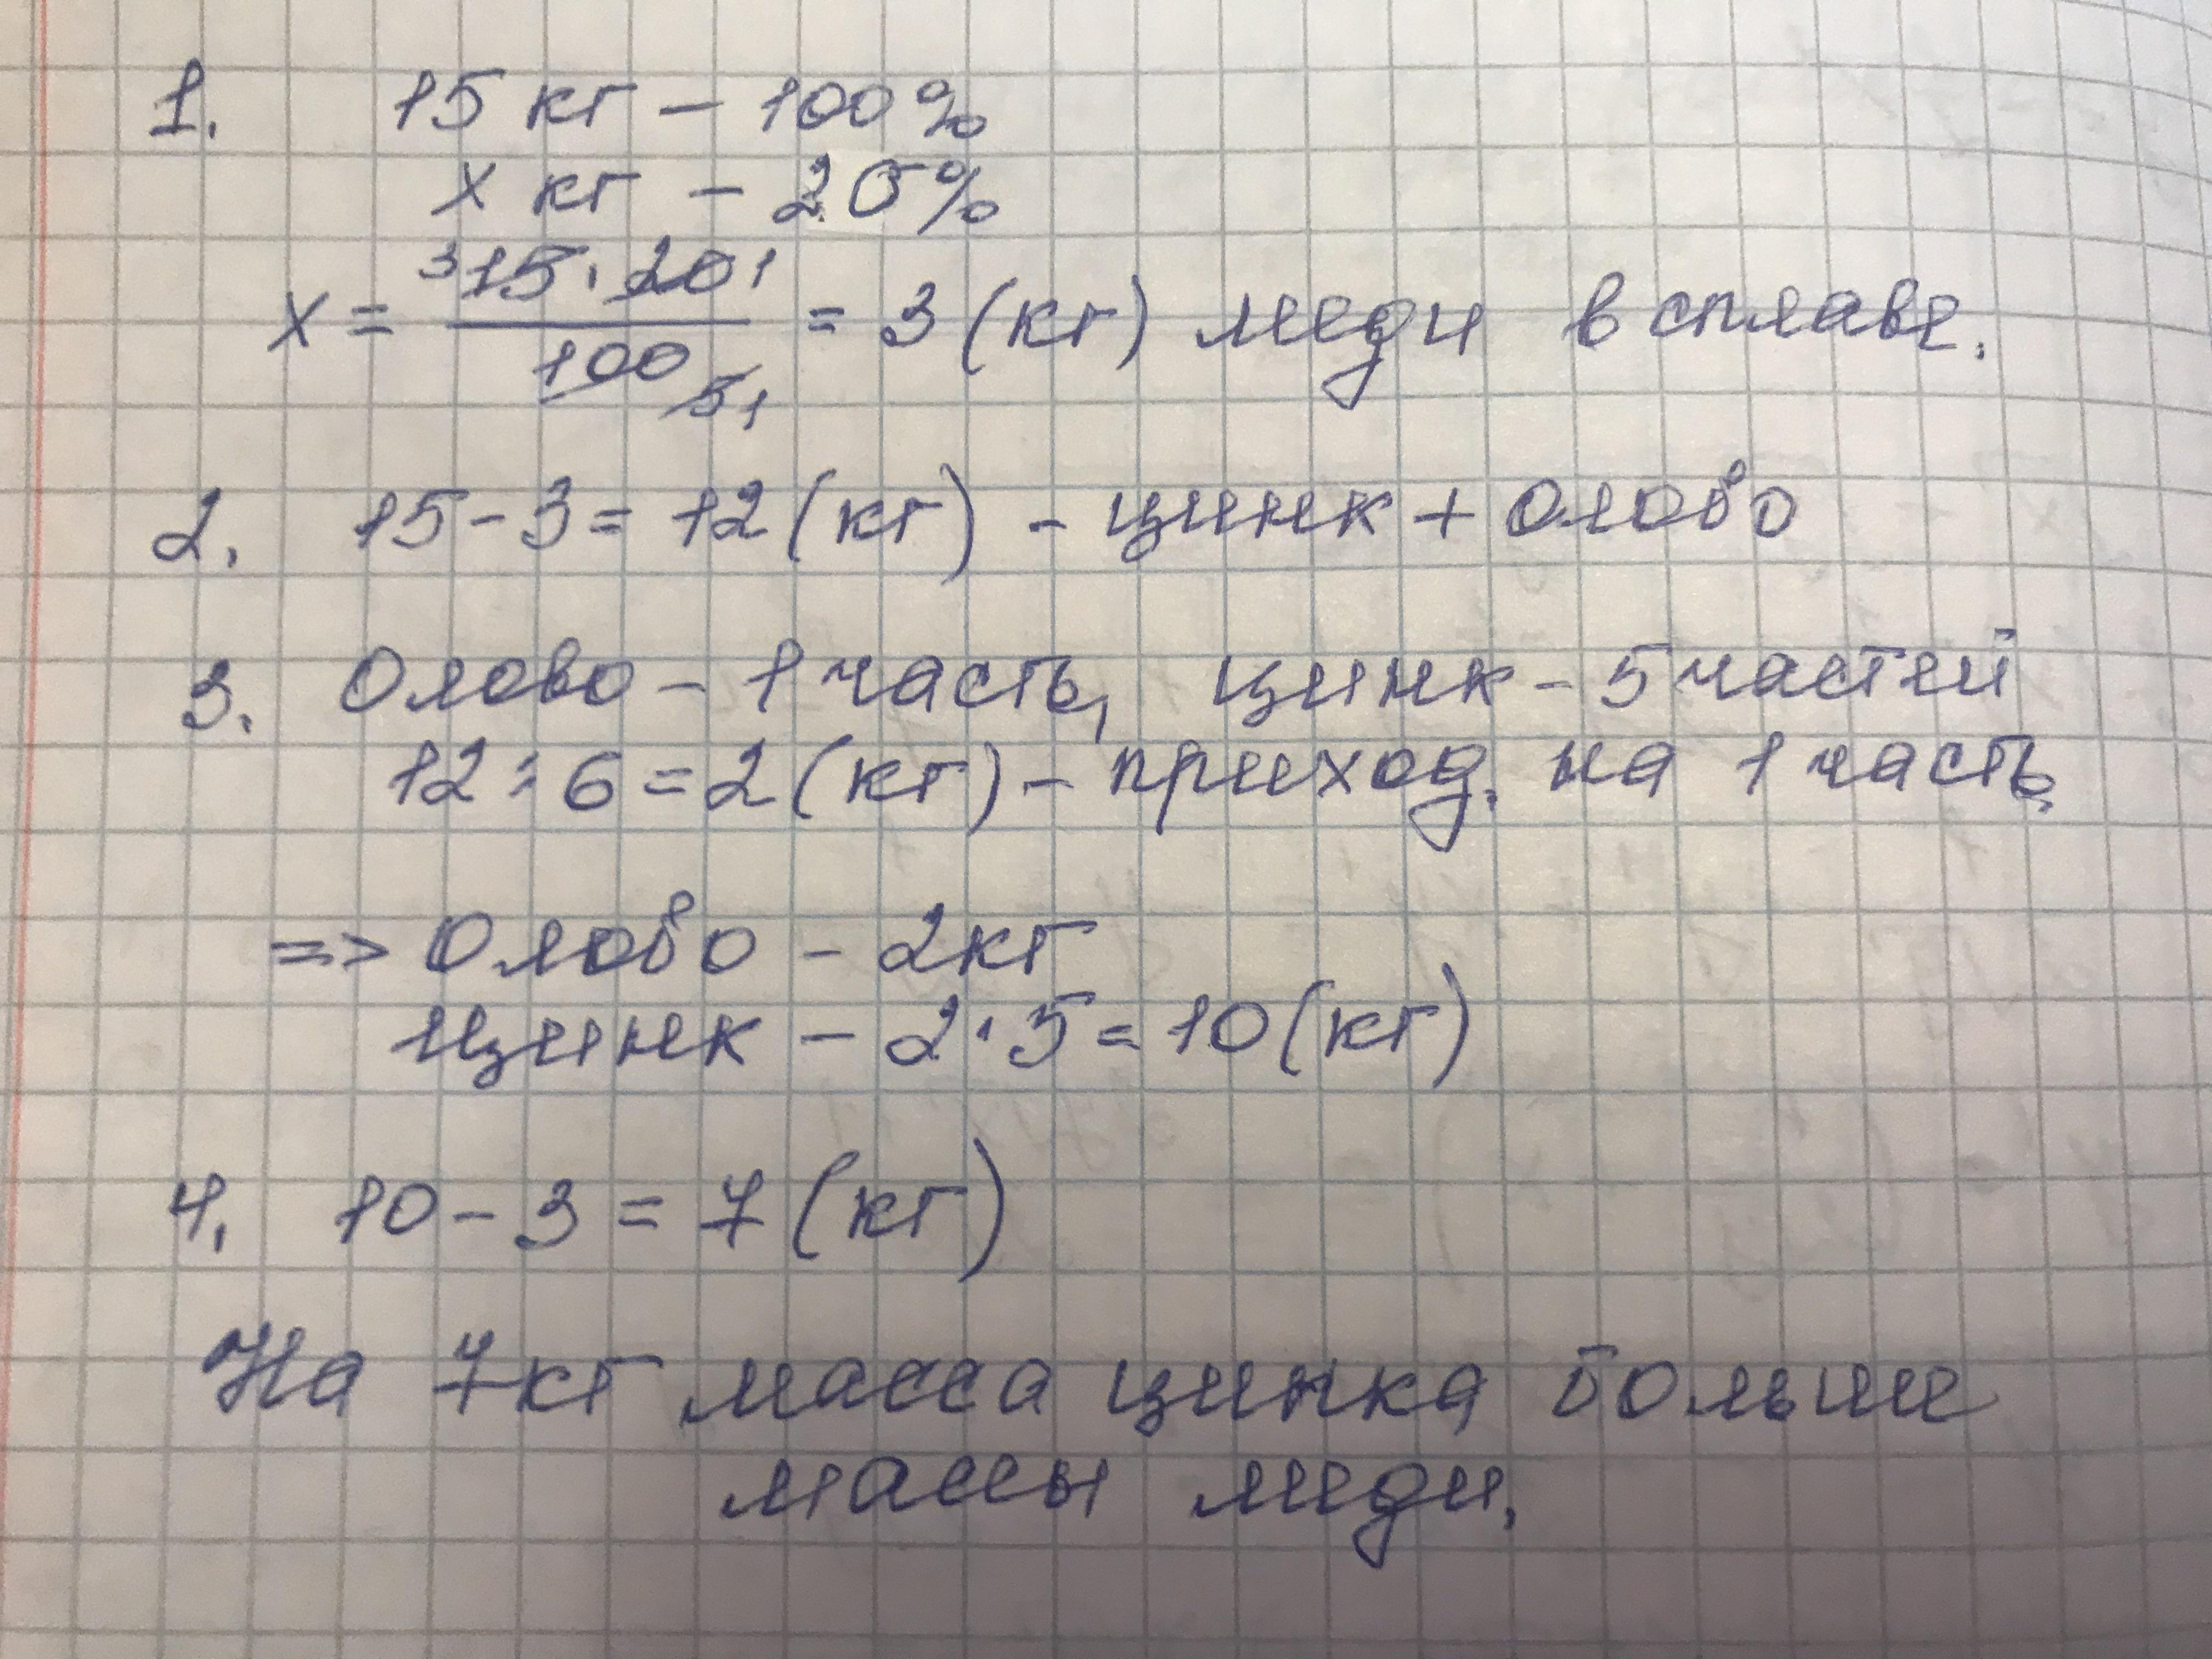 1. 15 кг - 100%
х кг - 20%
х = 15 · 20 / 100 = 3 (кг) меди в сплаве.
2. 15 - 3 = 12 (кг) - цинк + олово
3. Олово - 1 часть, цинк - 5 частей
12 : 6 = 2 (кг) - приход. на 1 часть
=> Олово - 2кг
Цинк - 2 · 5 = 10 (кг)
4. 10 - 3 = 7 (кг)
На 7кг масса цинка больше
массы меди.